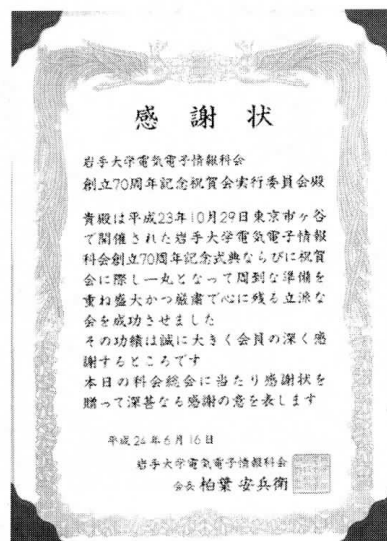 感謝状
岩手大学電気電子情報科会
創立70周年記念祝賀会実行委員会殿
貴殿は平成23年10月29日東京市ヶ谷
で開催された岩手大学電気電子情報
科会創立70周年記念式典ならびに祝賀
会に際し一丸となって周到な準備を
重ね盛大かつ厳粛で心に残る立派な
会を成功させました
その功績は誠に大きく会員の深く感
謝するところです
本日の科会総会に当たり感謝状を
贈って深甚なる感謝の意を表します
平成24年6月16日
岩手大学電気電子情報科会
会長 柏葉安兵衛